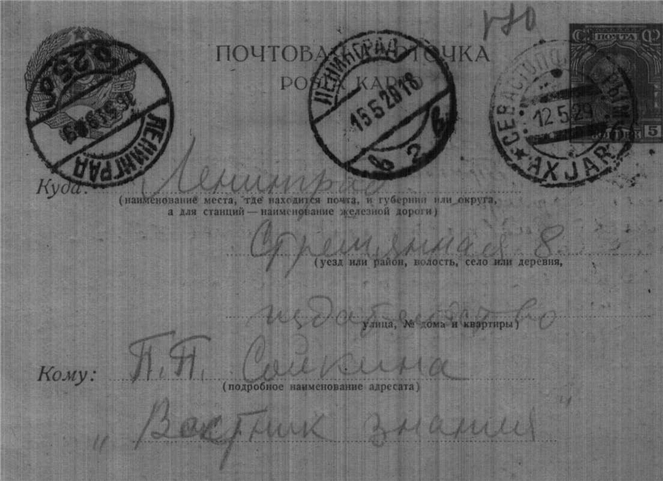 ПОЧТОВАЯ КАРТОЧКА
ЛЕНИНГРАД
15.5.29 18
в 2 в
СЕВАСТОПОЛЬ КРЫМ
12.5.29
AXJAR
ЛЕНИНГРАД
ПОЧТА
5
Куда: Ленинград
(наименование места, где находится почта, и губернии или округа,
а для станций — наименование железной дороги)
Стремянная 8
(уезд или район, волость, село или деревня,
издательство
улица, № дома и квартиры)
Кому: П.П. Сойкина
(подробное наименование адресата)
„Вестник знания"